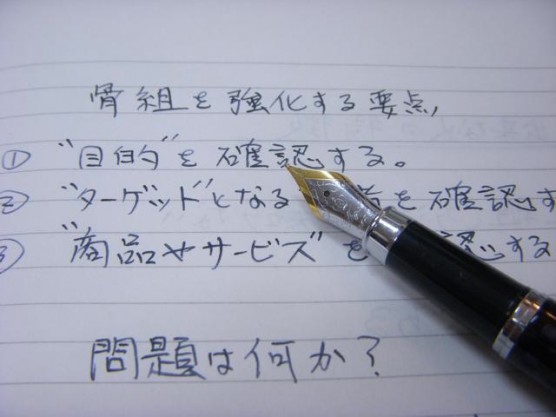 骨組を強化する要点
① "目的"を確認する。
② "ターゲット"となる を確認す
③ "商品やサービス"を 認する
問題は何か?